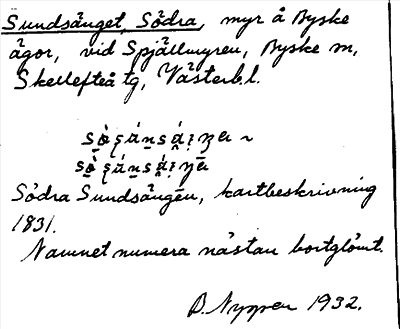 Sundsånget, Södra, myr å Byske
ägor, vid Spjällmyren, Byske sn,
Skellefteå tg, Västerbl.
Södra Sundsången, kartbeskrivning
1831.
Namnet numera nästan bortglömt.
B. Nyper 1932.